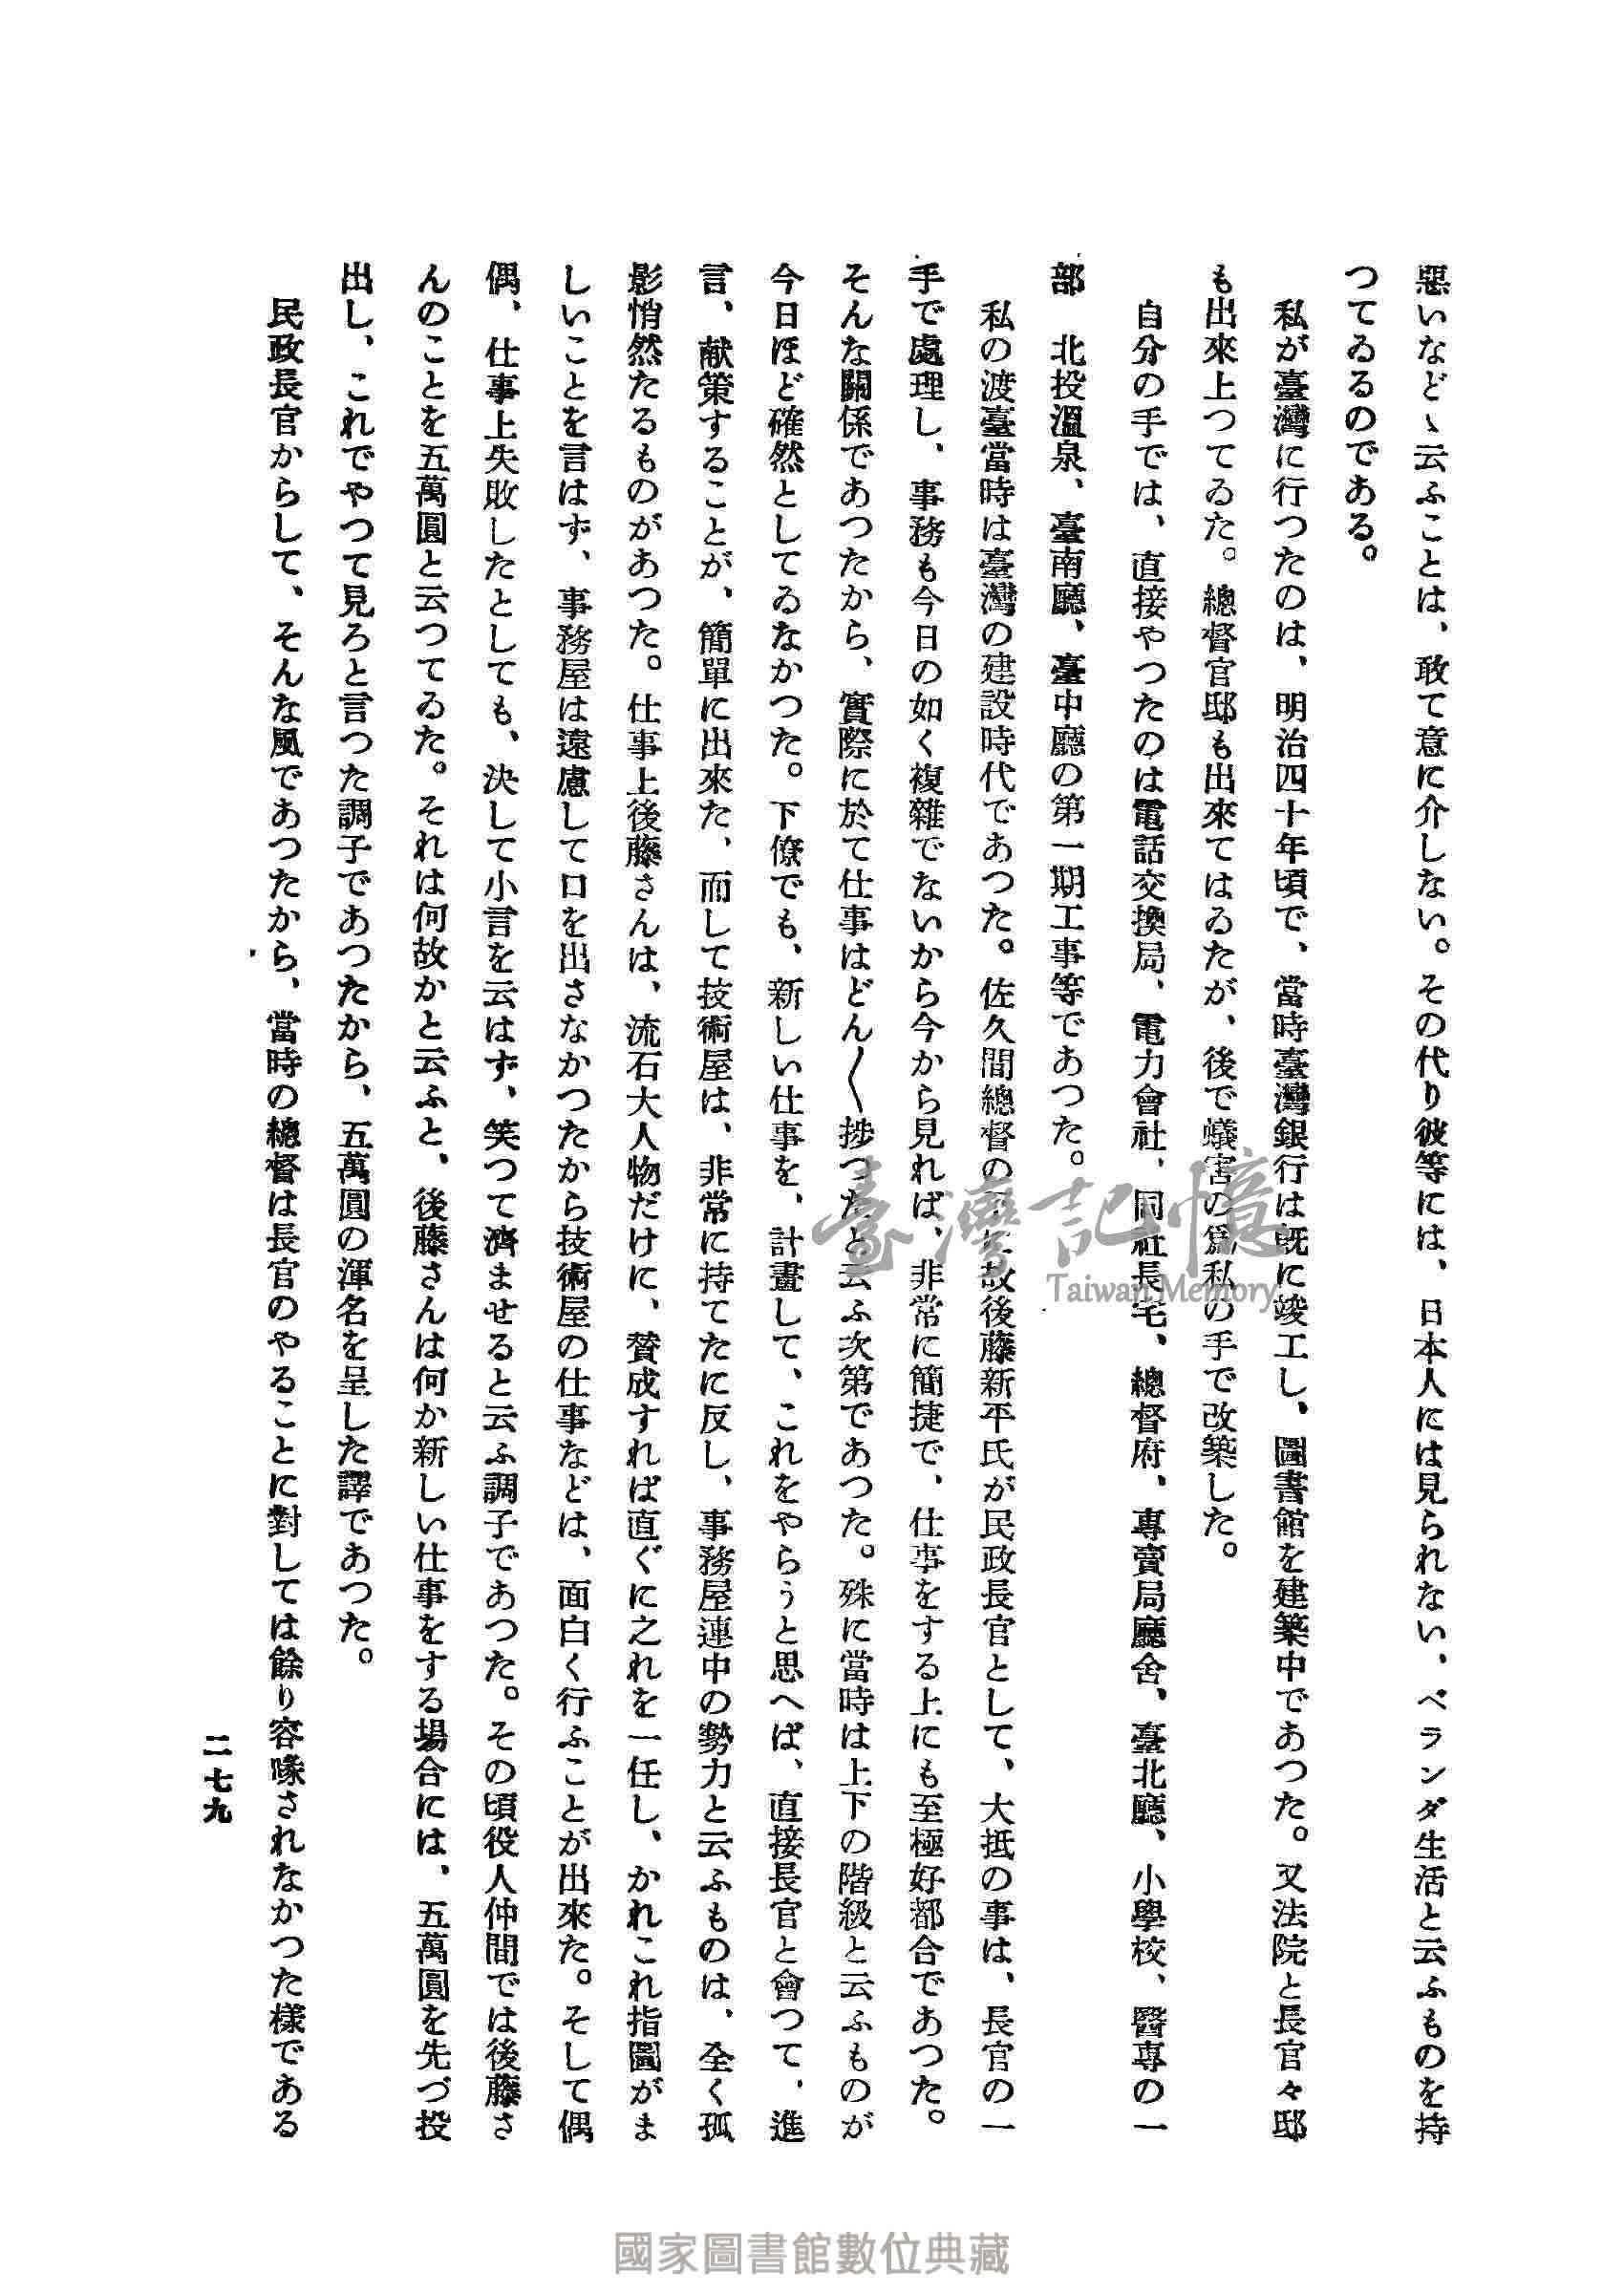 惡いなどゝ云ふことは、敢て意に介しない。その代り彼等には、日本人には見られない、ベランダ生活と云ふものを持
つてゐるのである。
私が臺灣に行つたのは、明治四十年頃で、當時臺灣銀行は既に竣工し、圖書館を建築中であつた。又法院と長官々邸
も出來上つてゐた。總督官邸も出來てはゐたが、後で蟻害の爲私の手で改築した。
自分の手では、直接やつたのは電話交換局、電力會社、同社長宅、總督府、專賣局廳舍、臺北廳、小學校、醫專の一
部　北投溫泉、臺南廳、臺中廳の第一期工事等であつた。
私の渡臺當時は臺灣の建設時代であつた。佐久間總督の下に故後藤新平氏が民政長官として、大抵の事は、長官の一
手で處理し、事務も今日の如く複雜でないから今から見れば、非常に簡捷で、仕事をする上にも至極好都合であつた。
そんな關係であつたから、實際に於て仕事はどん〱捗つたと云ふ次第であつた。殊に當時は上下の階級と云ふものが
今日ほど確然としてゐなかつた。下僚でも、新しい仕事を、計畫して、これをやらうと思へば、直接長官と會つて、進
言、献策することが、簡單に出來た、而して技術屋は、非常に持てたに反し、事務屋連中の勢力と云ふものは、全く孤
影悄然たるものがあつた。仕事上後藤さんは、流石大人物だけに、贊成すれば直ぐに之れを一任し、かれこれ指圖がま
しいことを言はず、事務屋は遠慮して口を出さなかつたから技術屋の仕事などは、面白く行ふことが出來た。そして偶
偶、仕事上失敗したとしても、決して小言を云はず、笑つて濟ませると云ふ調子であつた。その頃役人仲間では後藤さ
んのことを五萬圓と云つてゐた。それは何故かと云ふと、後藤さんは何か新しい仕事をする場合には、五萬圓を先づ投
出し、これでやつて見ろと言つた調子であつたから、五萬圓の渾名を呈した譯であつた。
民政長官からして、そんな風であつたから、當時の總督は長官のやることに對しては餘り容喙されなかつた樣である
二七九
臺灣記憶
Taiwan Memory
國家圖書館數位典藏